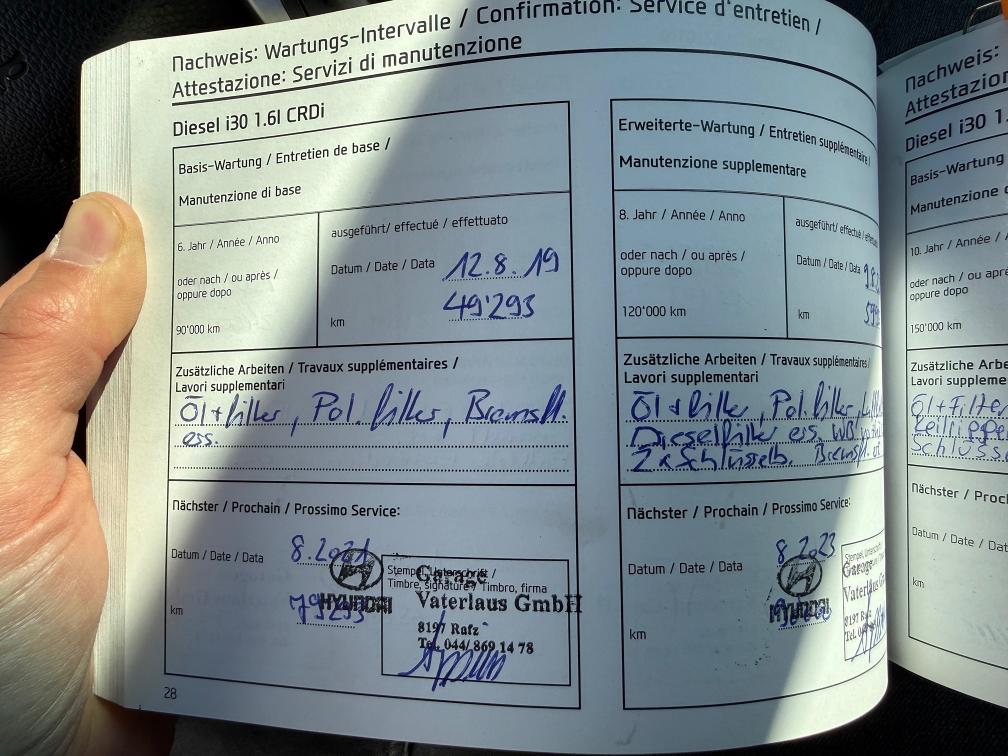 Nachweis: Wartungs-Intervalle / Confirmation: Service d'entretien /
Attestazione: Servizi di manutenzione
Diesel i30 1.6l CRDi
Basis-Wartung / Entretien de base /
Manutenzione di base
6. Jahr / Année / Anno
oder nach / ou après /
oppure dopo
90'000 km
ausgeführt/ effectué / effettuato
Datum / Date / Data 12.8.19
km 49'293
Zusätzliche Arbeiten / Travaux supplémentaires /
Lavori supplementari
Öl + filter, Pol. filter, Bremsfl.
ers.
Nächster / Prochain / Prossimo Service:
Datum / Date / Data 8.2021
km 79293
HYUNDAI
Stempel, Unterschrift /
Timbre, signature / Timbro, firma
Garage
Vaterlaus GmbH
8197 Rafz
Tel. 044/ 869 14 78
28
Erweiterte-Wartung / Entretien supplémentaire /
Manutenzione supplementare
8. Jahr / Année / Anno
oder nach / ou après /
oppure dopo
120'000 km
ausgeführt/ effectué / effettuato
Datum / Date / Data
km
Zusätzliche Arbeiten / Travaux supplémentaires /
Lavori supplementari
Öl + filter, Pol. filter,
Dieselfilter ers. WB
2x Schlüsselb. Bremsfl.
Nächster / Prochain / Prossimo Service:
Datum / Date / Data 8.2023
km
HYUNDAI
Stempel,
Garage
Vaterlaus
8197 Rafz
Tel. 044/
Nachweis:
Attestazion
Diesel i30 1.
Basis-Wartung
Manutenzione
10. Jahr / Année /
oder nach / ou apr
oppure dopo
150'000 km
Zusätzliche Arbe
Lavori suppleme
Öl + Filter
Keilrippe
Schlüsse
Nächster / Proch
Datum / Date / Dat
km